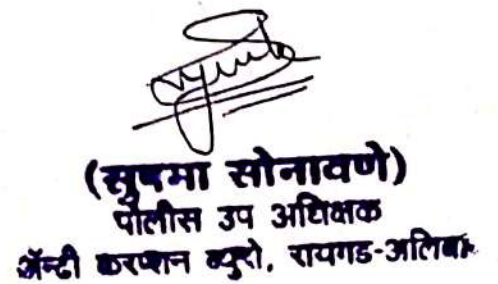 (सुषमा सोनावणे)
पोलीस उप अधिक्षक
ॲन्टी करप्शन ब्युरो, रायगड-अलिबाग